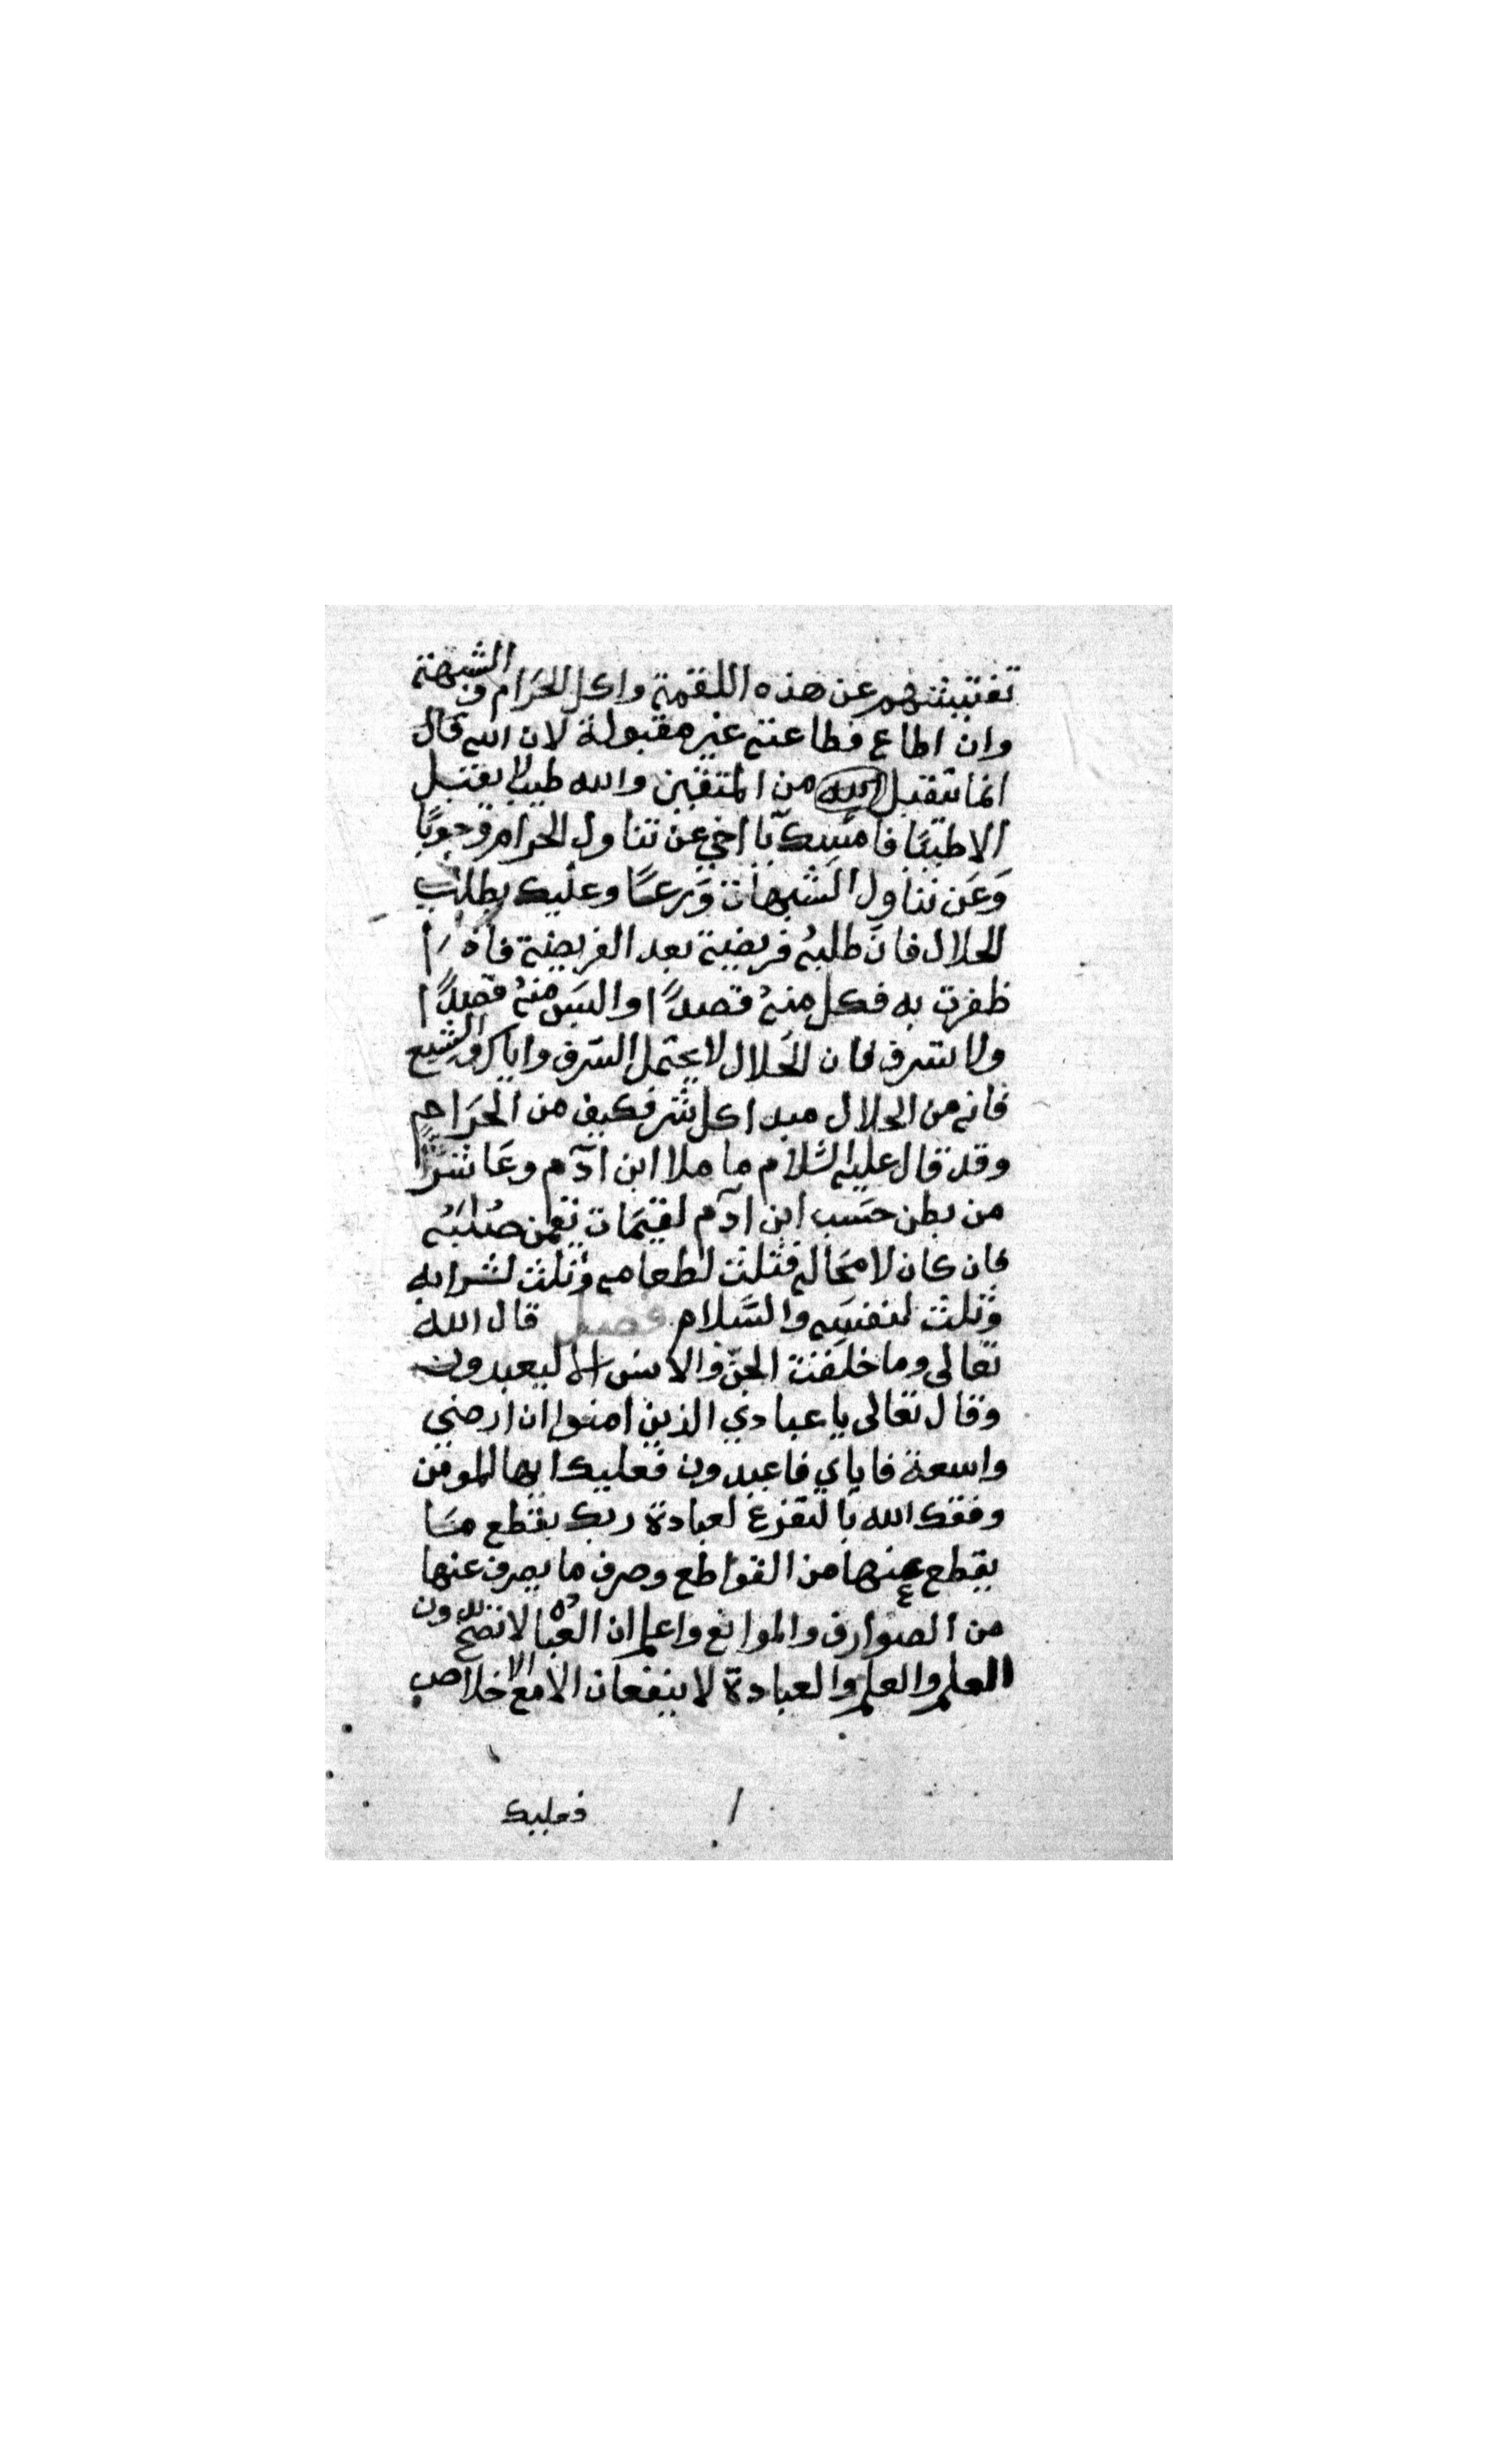 تفتيشهم عن هذه اللقمة واكل الحَرَام والشبهة
وان اطاع فطاعته غير مقبولة لان الله قال
انما يتقبل الله من المتقين والله طيب لا يقبل
الا طيبًا فامسك يا اخي عن تناول الحرام وجوبًا
وَعَن تناول الشبهات وَرعًا وعليك بطلب
الحلال فان طلبهُ فريضة بعد الفريضة فاذا
ظفرت به فكل منهُ قصدًا والبَس منهُ قصدًا
ولا تسرف فان الحَلال لا يحتمل السّرف واياك والشبع
فانه من الحلال مبدا كل شر فكيف من الحَرَام
وقد قال عليه السّلام ما ملا ابن آدم وعَا شرًّا
من بطن حَسَب ابن آدم لقيمَات يقمن صُلبَهُ
فان كان لا محَاله فثلث لطعامه وثلث لشرابه
وثلث لنفسَه والسَّلام فصل قال الله
تعالى وما خلقت الجنّ والانس الا ليعبدون
وقال تعالى يا عبادي الذين امنوا ان ارضي
واسعة فاياي فاعبدون فعليك ايها الموفق
وفقك الله بالتفرغ لعبادة ربك بقطع مَا
يقطع عنها من القواطع وصرف ما يصرف عنها
من الصوارف والموانع واعلم ان العبادة لا تصح بدون
العلم والعلم والعبادة لا ينفعان الا مع الاخلاص
فعليك